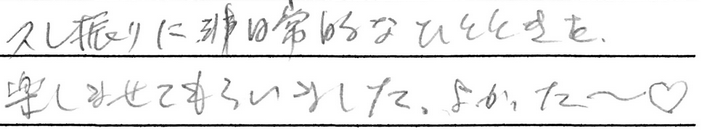 久し振りに非日常的なひとときを、
楽しませてもらいました。よかった〜♡